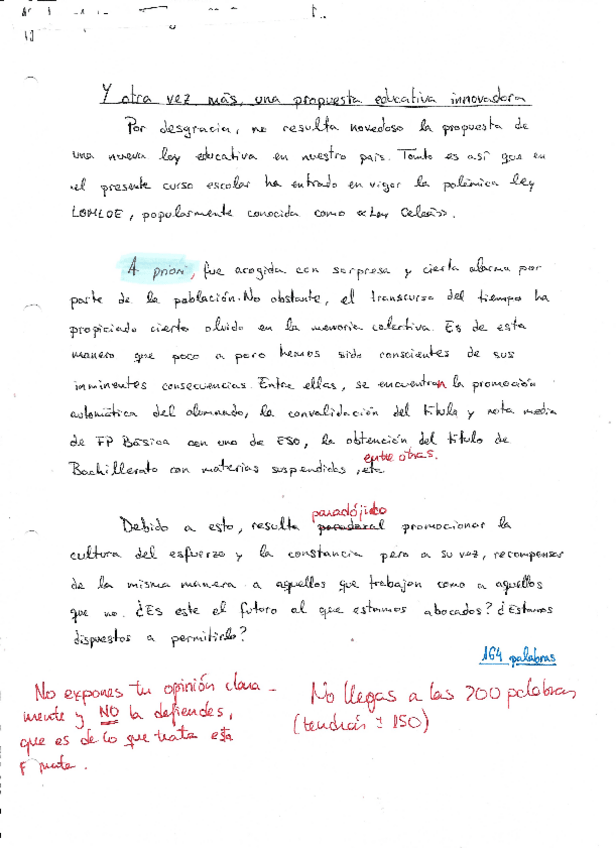 Y otra vez más, una propuesta educativa innovadora
Por desgracia, no resulta novedoso la propuesta de
una nueva ley educativa en nuestro país. Tanto es así que en
el presente curso escolar ha entrado en vigor la polémica ley
LOMLOE, popularmente conocida como «Ley Celaá».
A priori, fue acogida con sorpresa y cierta alarma por
parte de la población. No obstante, el transcurso del tiempo ha
propiciado cierto olvido en la memoria colectiva. Es de esta
manera que poco a poco hemos sido conscientes de sus
inminentes consecuencias. Entre ellas, se encuentran la promoción
automática del alumnado, la convalidación del título y nota media
de FP Básica con uno de ESO, la obtención del título de
entre otras.
Bachillerato con materias suspendidas, etc
paradójico
Debido a esto, resulta promocionar la
cultura del esfuerzo y la constancia pero a su vez, recompensar
de la misma manera a aquellos que trabajan como a aquellos
que no. ¿Es este el futuro al que estamos abocados? ¿Estamos
dispuestos a permitirlo?
164 palabras
No expones tu opinión clara-
mente y NO la defiendes,
que es de lo que trata esta
No llegas a las 200 palabras
(tendrás ± 150)